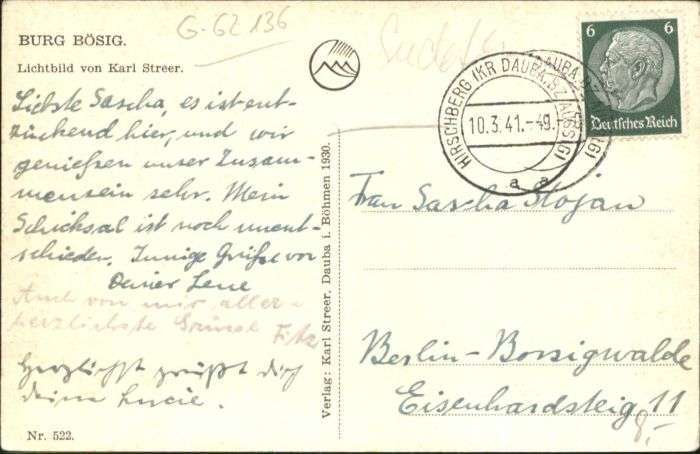 G-62 136
BURG BÖSIG.
Lichtbild von Karl Streer.
Liebste Sascha, es ist ent-
zückend hier, und wir
genießen unser Zusam-
mensein sehr. Mein
Schicksal ist noch unent-
schieden. Innige Grüße von
Deiner Lene
Auch von mir aller-
herzlichste Grüsse Fitz
Herzlichst grüßt dich
deine Lucie.
Nr. 522.
Verlag: Karl Streer, Dauba i. Böhmen 1930.
HIRSCHBERG (KR DAUBA
10.3.41.-49.
a a
6 6
Deutsches Reich
Frau Sascha Stojan
Berlin-Borsigwalde
Eisenhardsteig 11
8,-